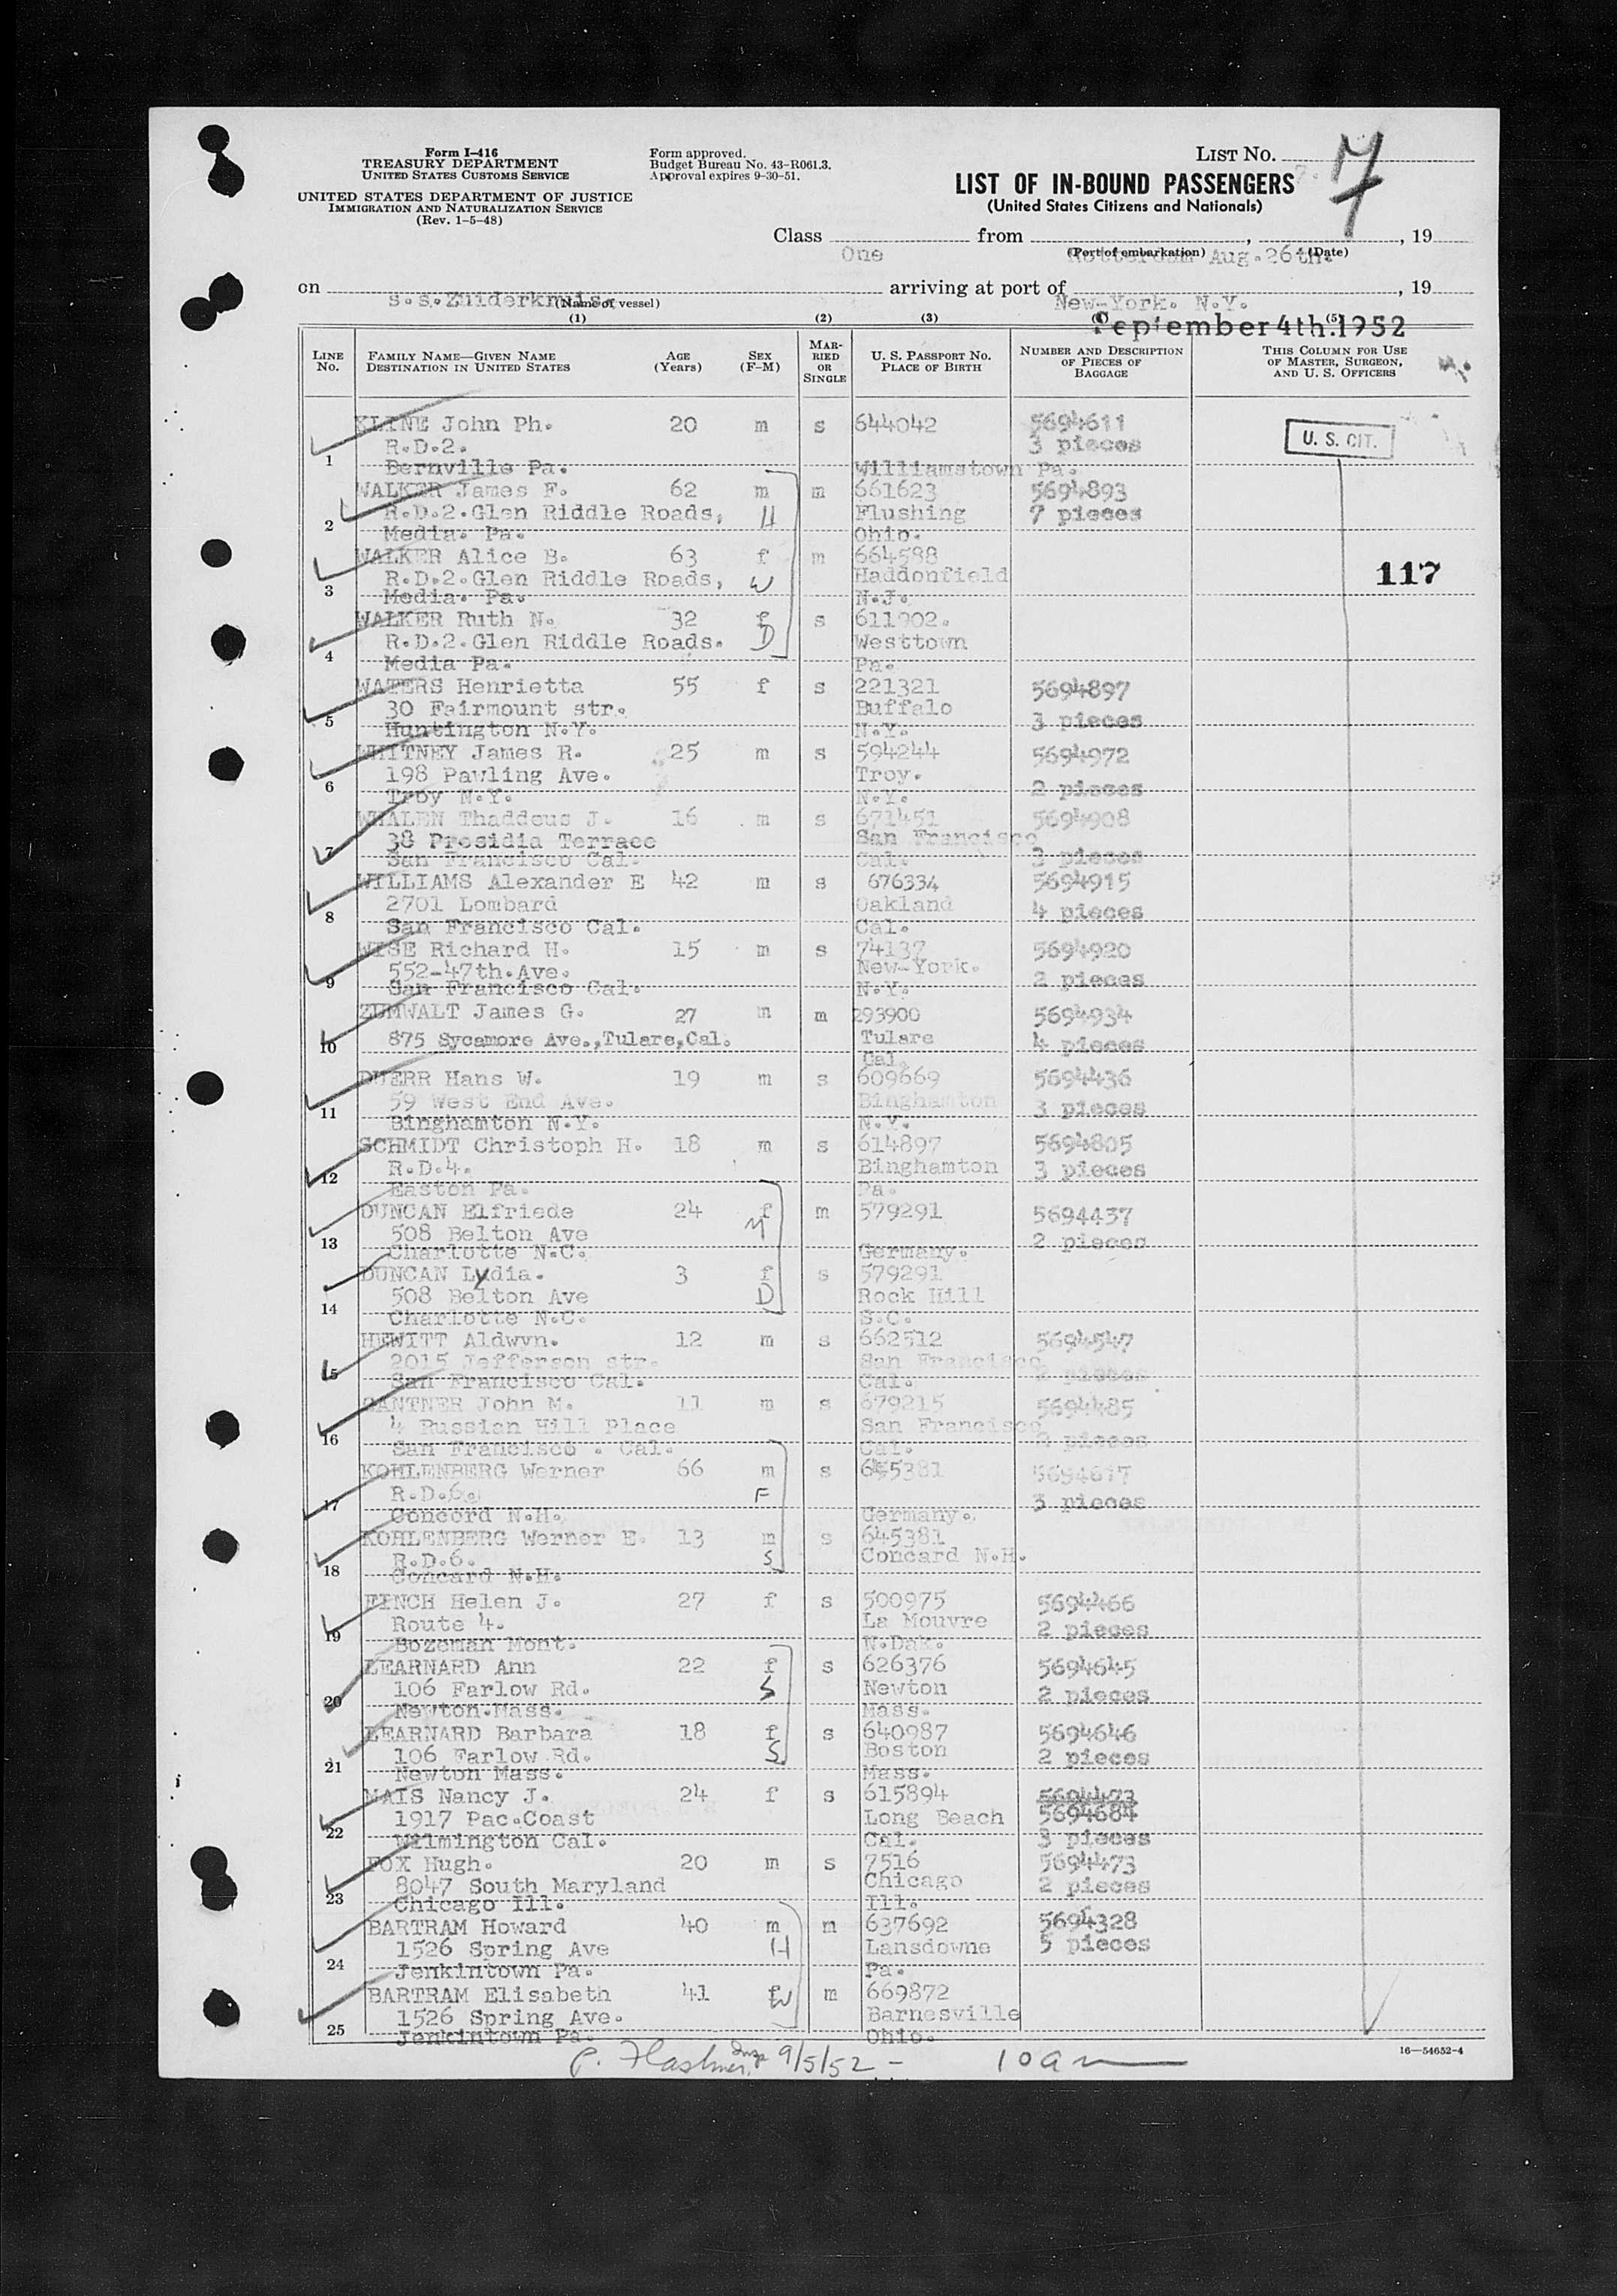 Form I-416
TREASURY DEPARTMENT
UNITED STATES CUSTOMS SERVICE
UNITED STATES DEPARTMENT OF JUSTICE
IMMIGRATION AND NATURALIZATION SERVICE
(Rev. 1-5-48)
Form approved.
Budget Bureau No. 43-R061.3.
Approval expires 9-30-51.
LIST NO. 7
LIST OF IN-BOUND PASSENGERS
(United States Citizens and Nationals)
Class One from Rotterdam Aug. 26th. , 19
(Port of embarkation) (Date)
on s.s. Zuiderkruis. arriving at port of New-York. N.Y. , 19
(Name of vessel)
September 4th. 1952
(1) (2) (3) (4) (5)
LINE NO. FAMILY NAME—GIVEN NAME DESTINATION IN UNITED STATES AGE (Years) SEX (F-M) MARRIED OR SINGLE U. S. PASSPORT NO. PLACE OF BIRTH NUMBER AND DESCRIPTION OF PIECES OF BAGGAGE THIS COLUMN FOR USE OF MASTER, SURGEON, AND U. S. OFFICERS
KLINE John Ph. 20 m s 644042 5694611 U. S. CIT.
R.D.2. 3 pieces
1 Bernville Pa. Williamstown Pa.
WALKER James F. 62 m m 661623 5694893
R.D.2.Glen Riddle Roads, H Flushing 7 pieces
2 Media. Pa. Ohio.
WALKER Alice B. 63 f m 664588
R.D.2.Glen Riddle Roads, W Haddonfield 117
3 Media. Pa. N.J.
WALKER Ruth N. 32 f s 611902.
R.D.2.Glen Riddle Roads. D Westtown
4 Media Pa. Pa.
WATERS Henrietta 55 f s 221321 5694897
30 Fairmount str. Buffalo
5 Huntington N.Y. N.Y. 3 pieces
WHITNEY James R. 25 m s 594244 5694972
198 Pawling Ave. Troy.
6 Troy N.Y. N.Y. 2 pieces
WHALEN Thaddeus J. 16 m s 671451 5694908
38 Presidia Terrace San Francisco
7 San Francisco Cal. Cal. 3 pieces
WILLIAMS Alexander E 42 m s 676334 5694915
2701 Lombard Oakland 4 pieces
8 San Francisco Cal. Cal.
WISE Richard H. 15 m s 74137 5694920
552-47th.Ave. New-York.
9 San Francisco Cal. N.Y. 2 pieces
ZUMWALT James G. 27 m m 293900 5694934
10 875 Sycamore Ave.,Tulare,Cal. Tulare 4 pieces
Cal.
DUERR Hans W. 19 m s 609669 5694436
59 West End Ave. Binghamton 3 pieces
11 Binghamton N.Y. N.Y.
SCHMIDT Christoph H. 18 m s 614897 5694805
R.D.4. Binghamton 3 pieces
12 Easton Pa. Pa.
DUNCAN Elfriede 24 f m 579291 5694437
508 Belton Ave M 2 pieces
13 Charlotte N.C. Germany.
DUNCAN Lydia. 3 f s 579291
508 Belton Ave D Rock Hill
14 Charlotte N.C. S.C.
HEWITT Aldwyn. 12 m s 662512 5694547
2015 Jefferson str. San Francisco pieces
15 San Francisco Cal. Cal.
GANTNER John M. 11 m s 679215 5694485
4 Russian Hill Place San Francisco pieces
16 San Francisco . Cal. Cal.
KOHLENBERG Werner 66 m s 645381 5694617
R.D.6. F 3 pieces
17 Concord N.H. Germany.
KOHLENBERG Werner E. 13 m s 645381
R.D.6. S Concard N.H.
18 Concard N.H.
FINCH Helen J. 27 f s 500975 5694466
Route 4. La Mouvre 2 pieces
19 Bozeman Mont. N.Dak.
LEARNARD Ann 22 f s 626376 5694645
106 Farlow Rd. S Newton 2 pieces
20 Newton.Mass. Mass.
LEARNARD Barbara 18 f s 640987 5694646
106 Farlow Rd. S Boston 2 pieces
21 Newton Mass. Mass.
MAIS Nancy J. 24 f s 615894 5694473
1917 Pac.Coast Long Beach 5694684
22 Wilmington Cal. Cal. 3 pieces
FOX Hugh. 20 m s 7516 5694473
8047 South Maryland Chicago 2 pieces
23 Chicago Ill. Ill.
BARTRAM Howard 40 m m 637692 5694328
1526 Spring Ave H Lansdowne 5 pieces
24 Jenkintown Pa. Pa.
BARTRAM Elisabeth 41 f W m 669872
1526 Spring Ave. Barnesville
25 Jenkintown Pa. Ohio.
9/5/52 - 10 am
16—54652-4